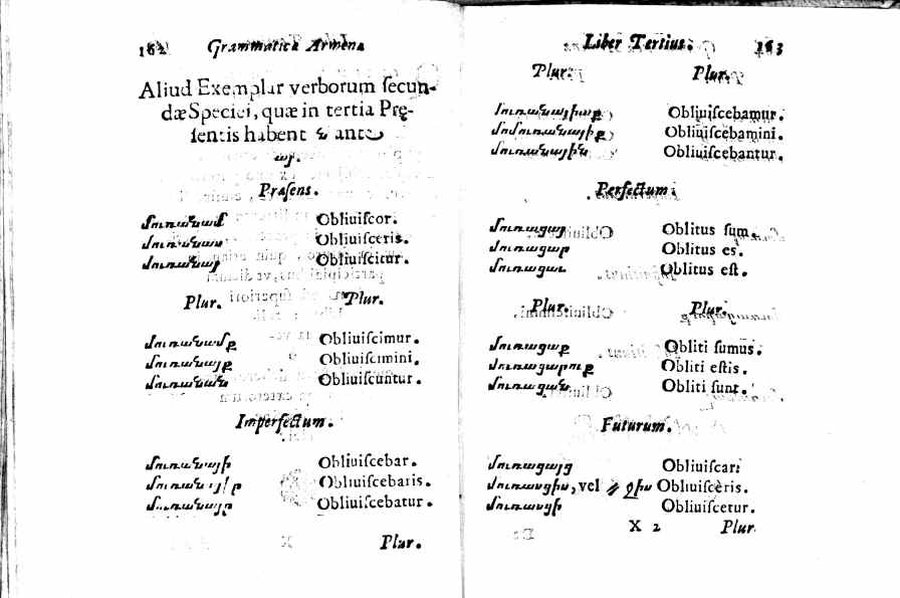 162 Grammaticæ Armenæ
Aliud Exemplar verborum secun-
dæ Speciei, quæ in tertia Præ-
sentis habent ն ante
այ.
Præsens.
մոռանամ Obliuiscor.
մոռանաս Obliuisceris.
մոռանայ Obliuiscitur.
Plur. Plur.
մոռանամք Obliuiscimur.
մոռանայք Obliuiscimini.
մոռանան Obliuiscuntur.
Imperfectum.
մոռանայի Obliuiscebar.
Obliuiscebaris.
մոռանայր Obliuiscebatur.
Plur.
Liber Tertius. 163
Plur. Plur.
մոռանայիաք Obliuiscebamur.
Obliuiscebamini.
մոռանային Obliuiscebantur.
Perfectum.
մոռացայ Oblitus sum.
մոռացար Oblitus es.
մոռացաւ Oblitus est.
Plur. Plur.
մոռացաք Obliti sumus.
մոռացարուք Obliti estis.
մոռացան Obliti sunt.
Futurum.
մոռացայց Obliuiscar.
մոռասցիս, vel ջիս Obliuisceris.
մոռասցի Obliuiscetur.
X 2 Plur.